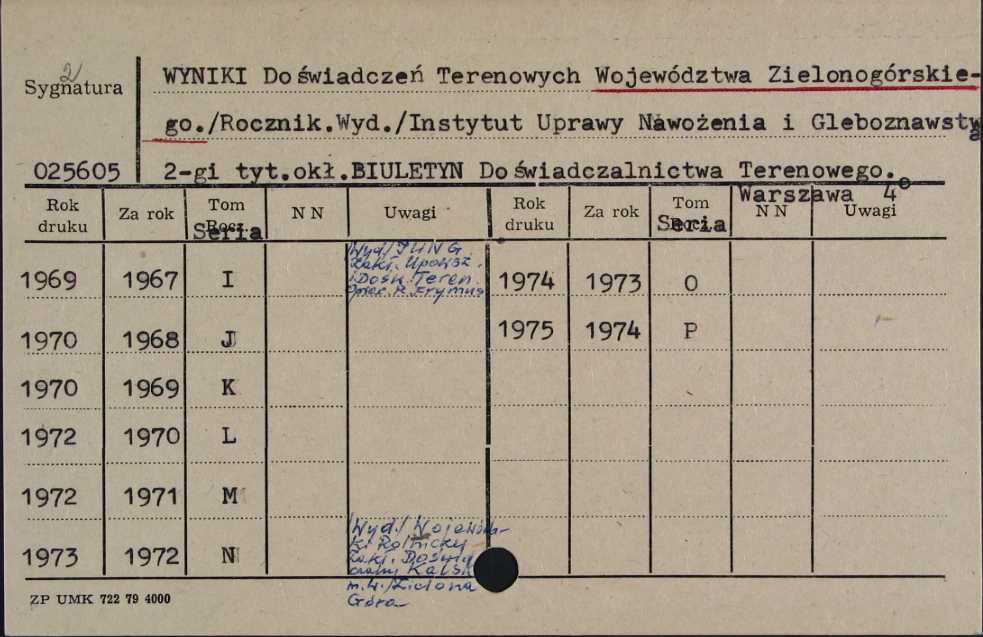 2
Sygnatura
WYNIKI Doświadczeń Terenowych Województwa Zielonogórskie-
go./Rocznik.Wyd./Instytut Uprawy Nawożenia i Gleboznawstw
a
025605
2-gi tyt.okł.BIULETYN Doświadczalnictwa Terenowego.
Warszawa 4°
Rok druku Za rok Tom Rocz. Seria N N Uwagi Rok druku Za rok Tom Rocz. Seria N N Uwagi
1969 1967 I Wyd./IUNG 1974 1973 O
Zakł. Upowsz.
i Dośw. Teren.
Oprac. R. Frymus
1970 1968 J 1975 1974 P
1970 1969 K
1972 1970 L
1972 1971 M
1973 1972 N Wyd./
Rolniczy
Zakł.
m.W./Zielona
Góra
ZP UMK 722 79 4000